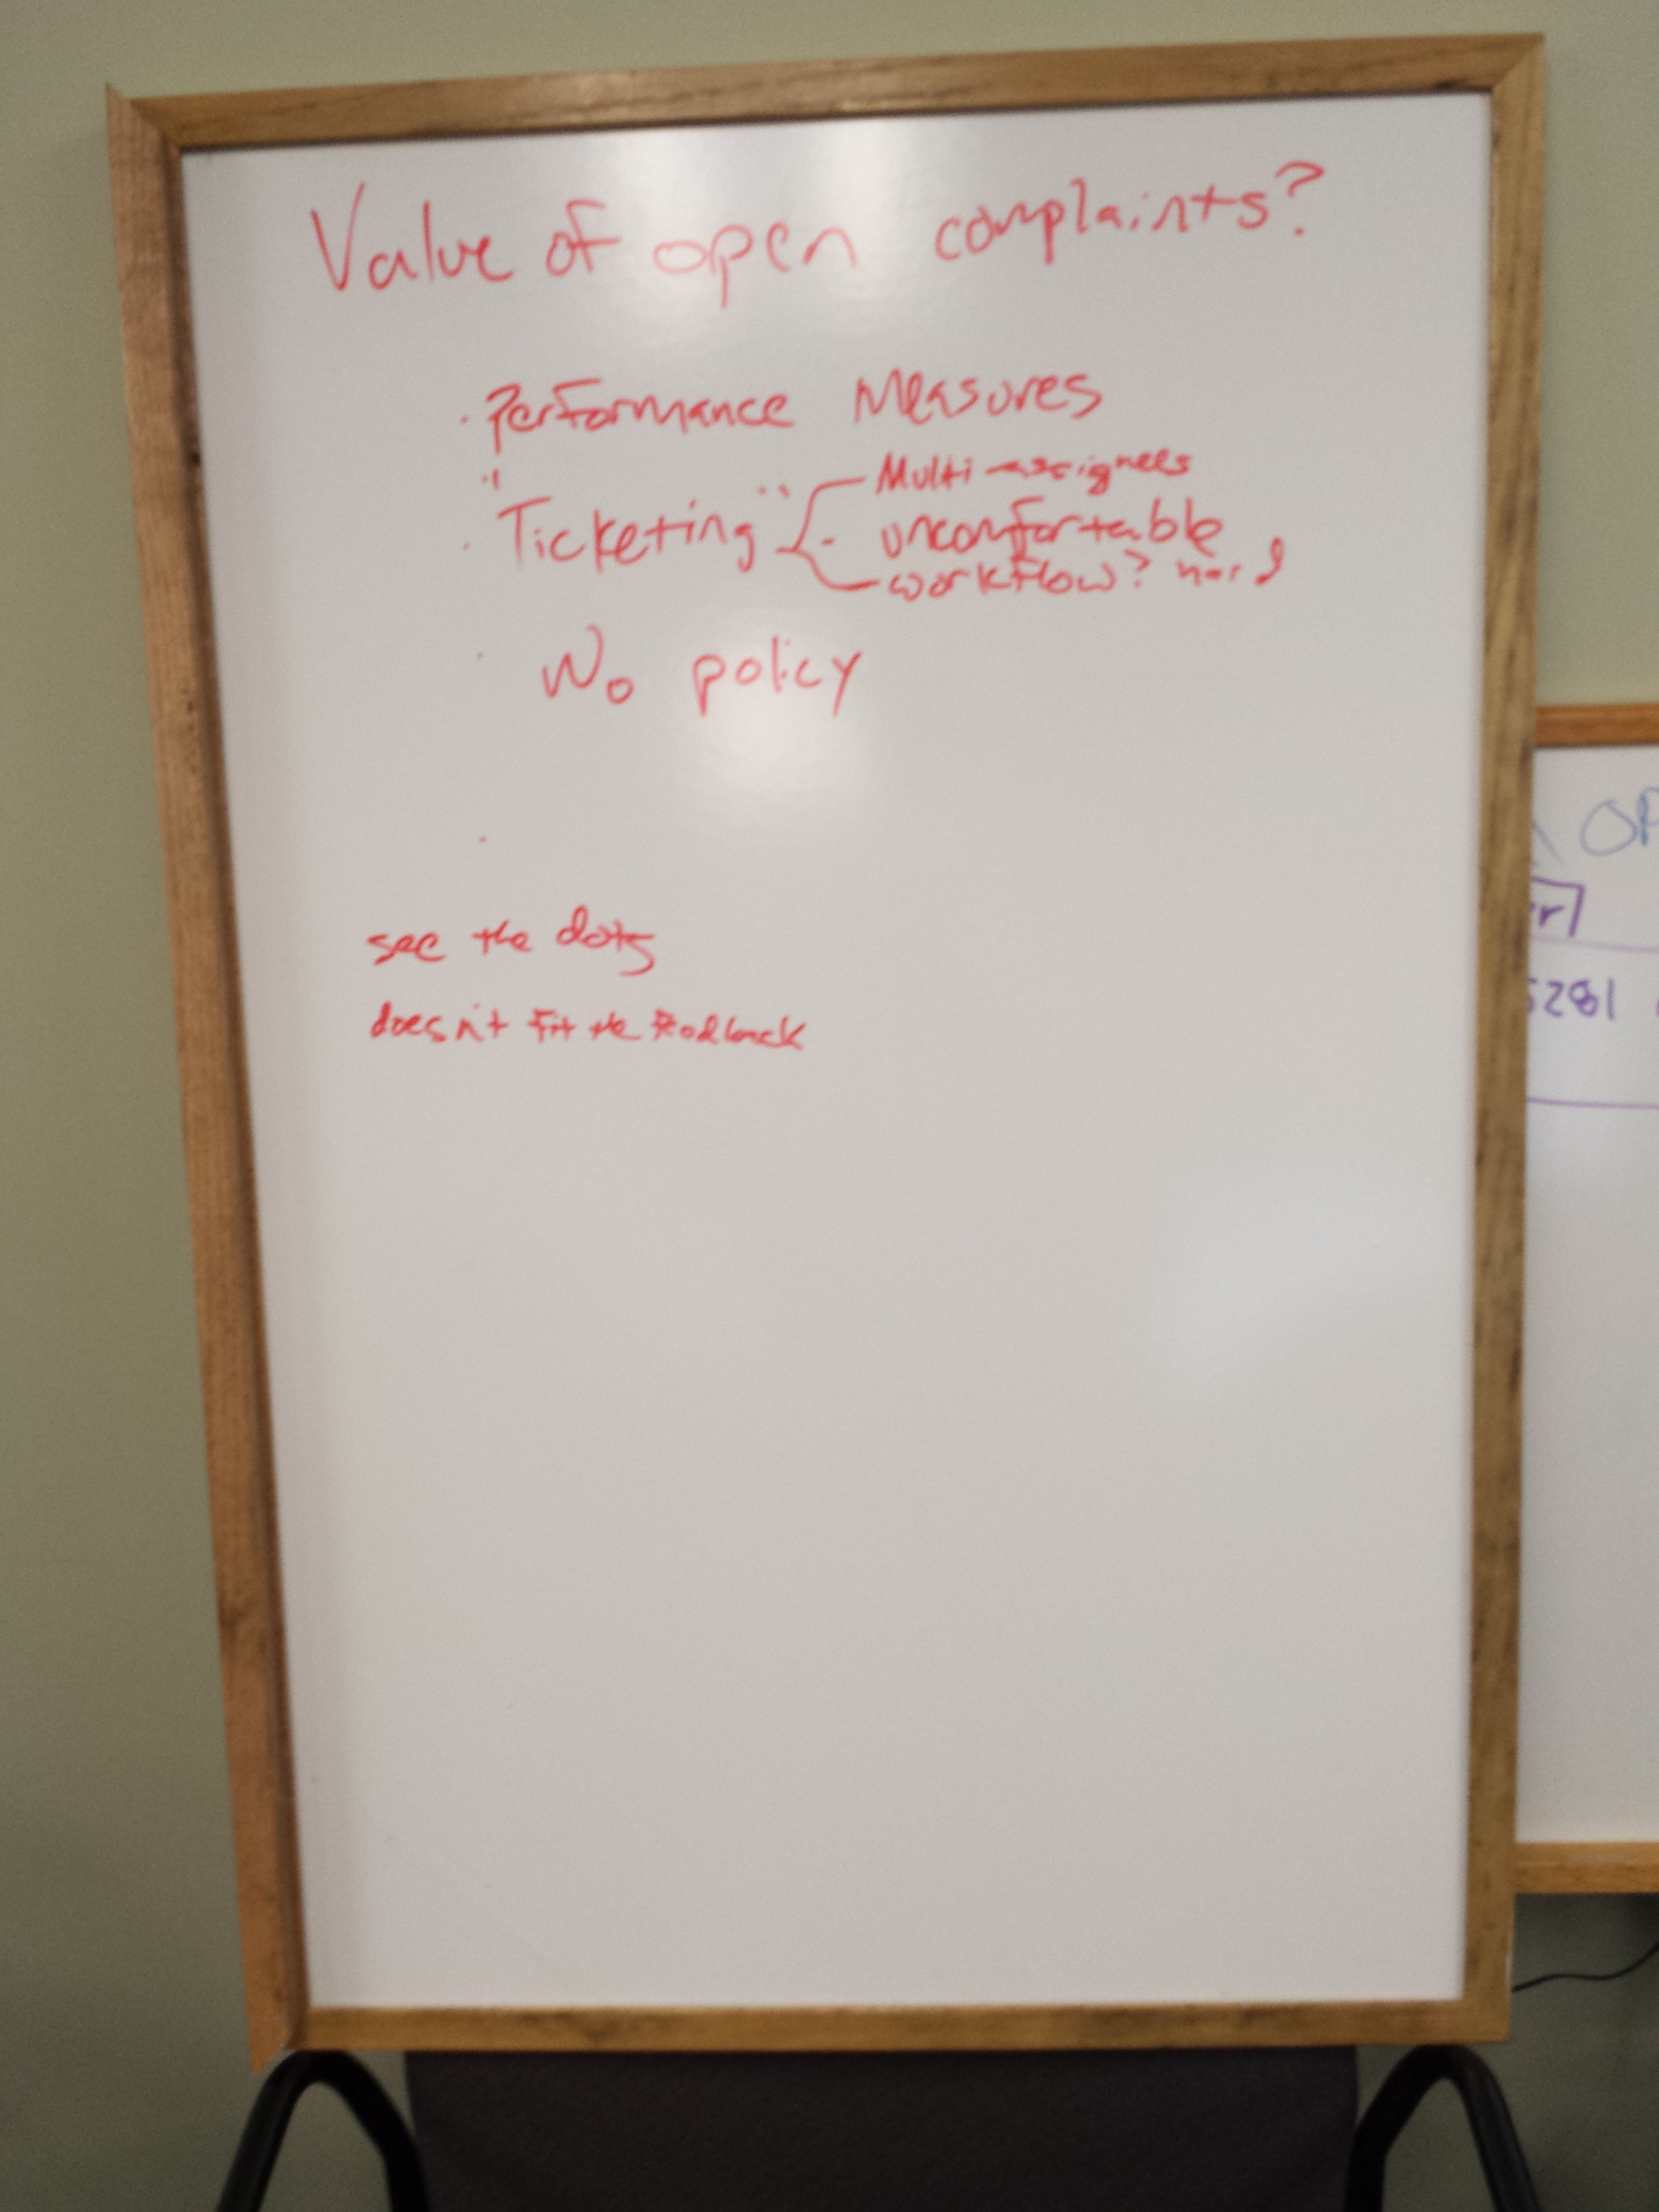 Value of open complaints?
· Performance Measures
· "Ticketing"
Multi-assignees
- uncomfortable
workflow? hard
· No policy
·
see the dots
doesn't fit the feedback
OP
r
5281